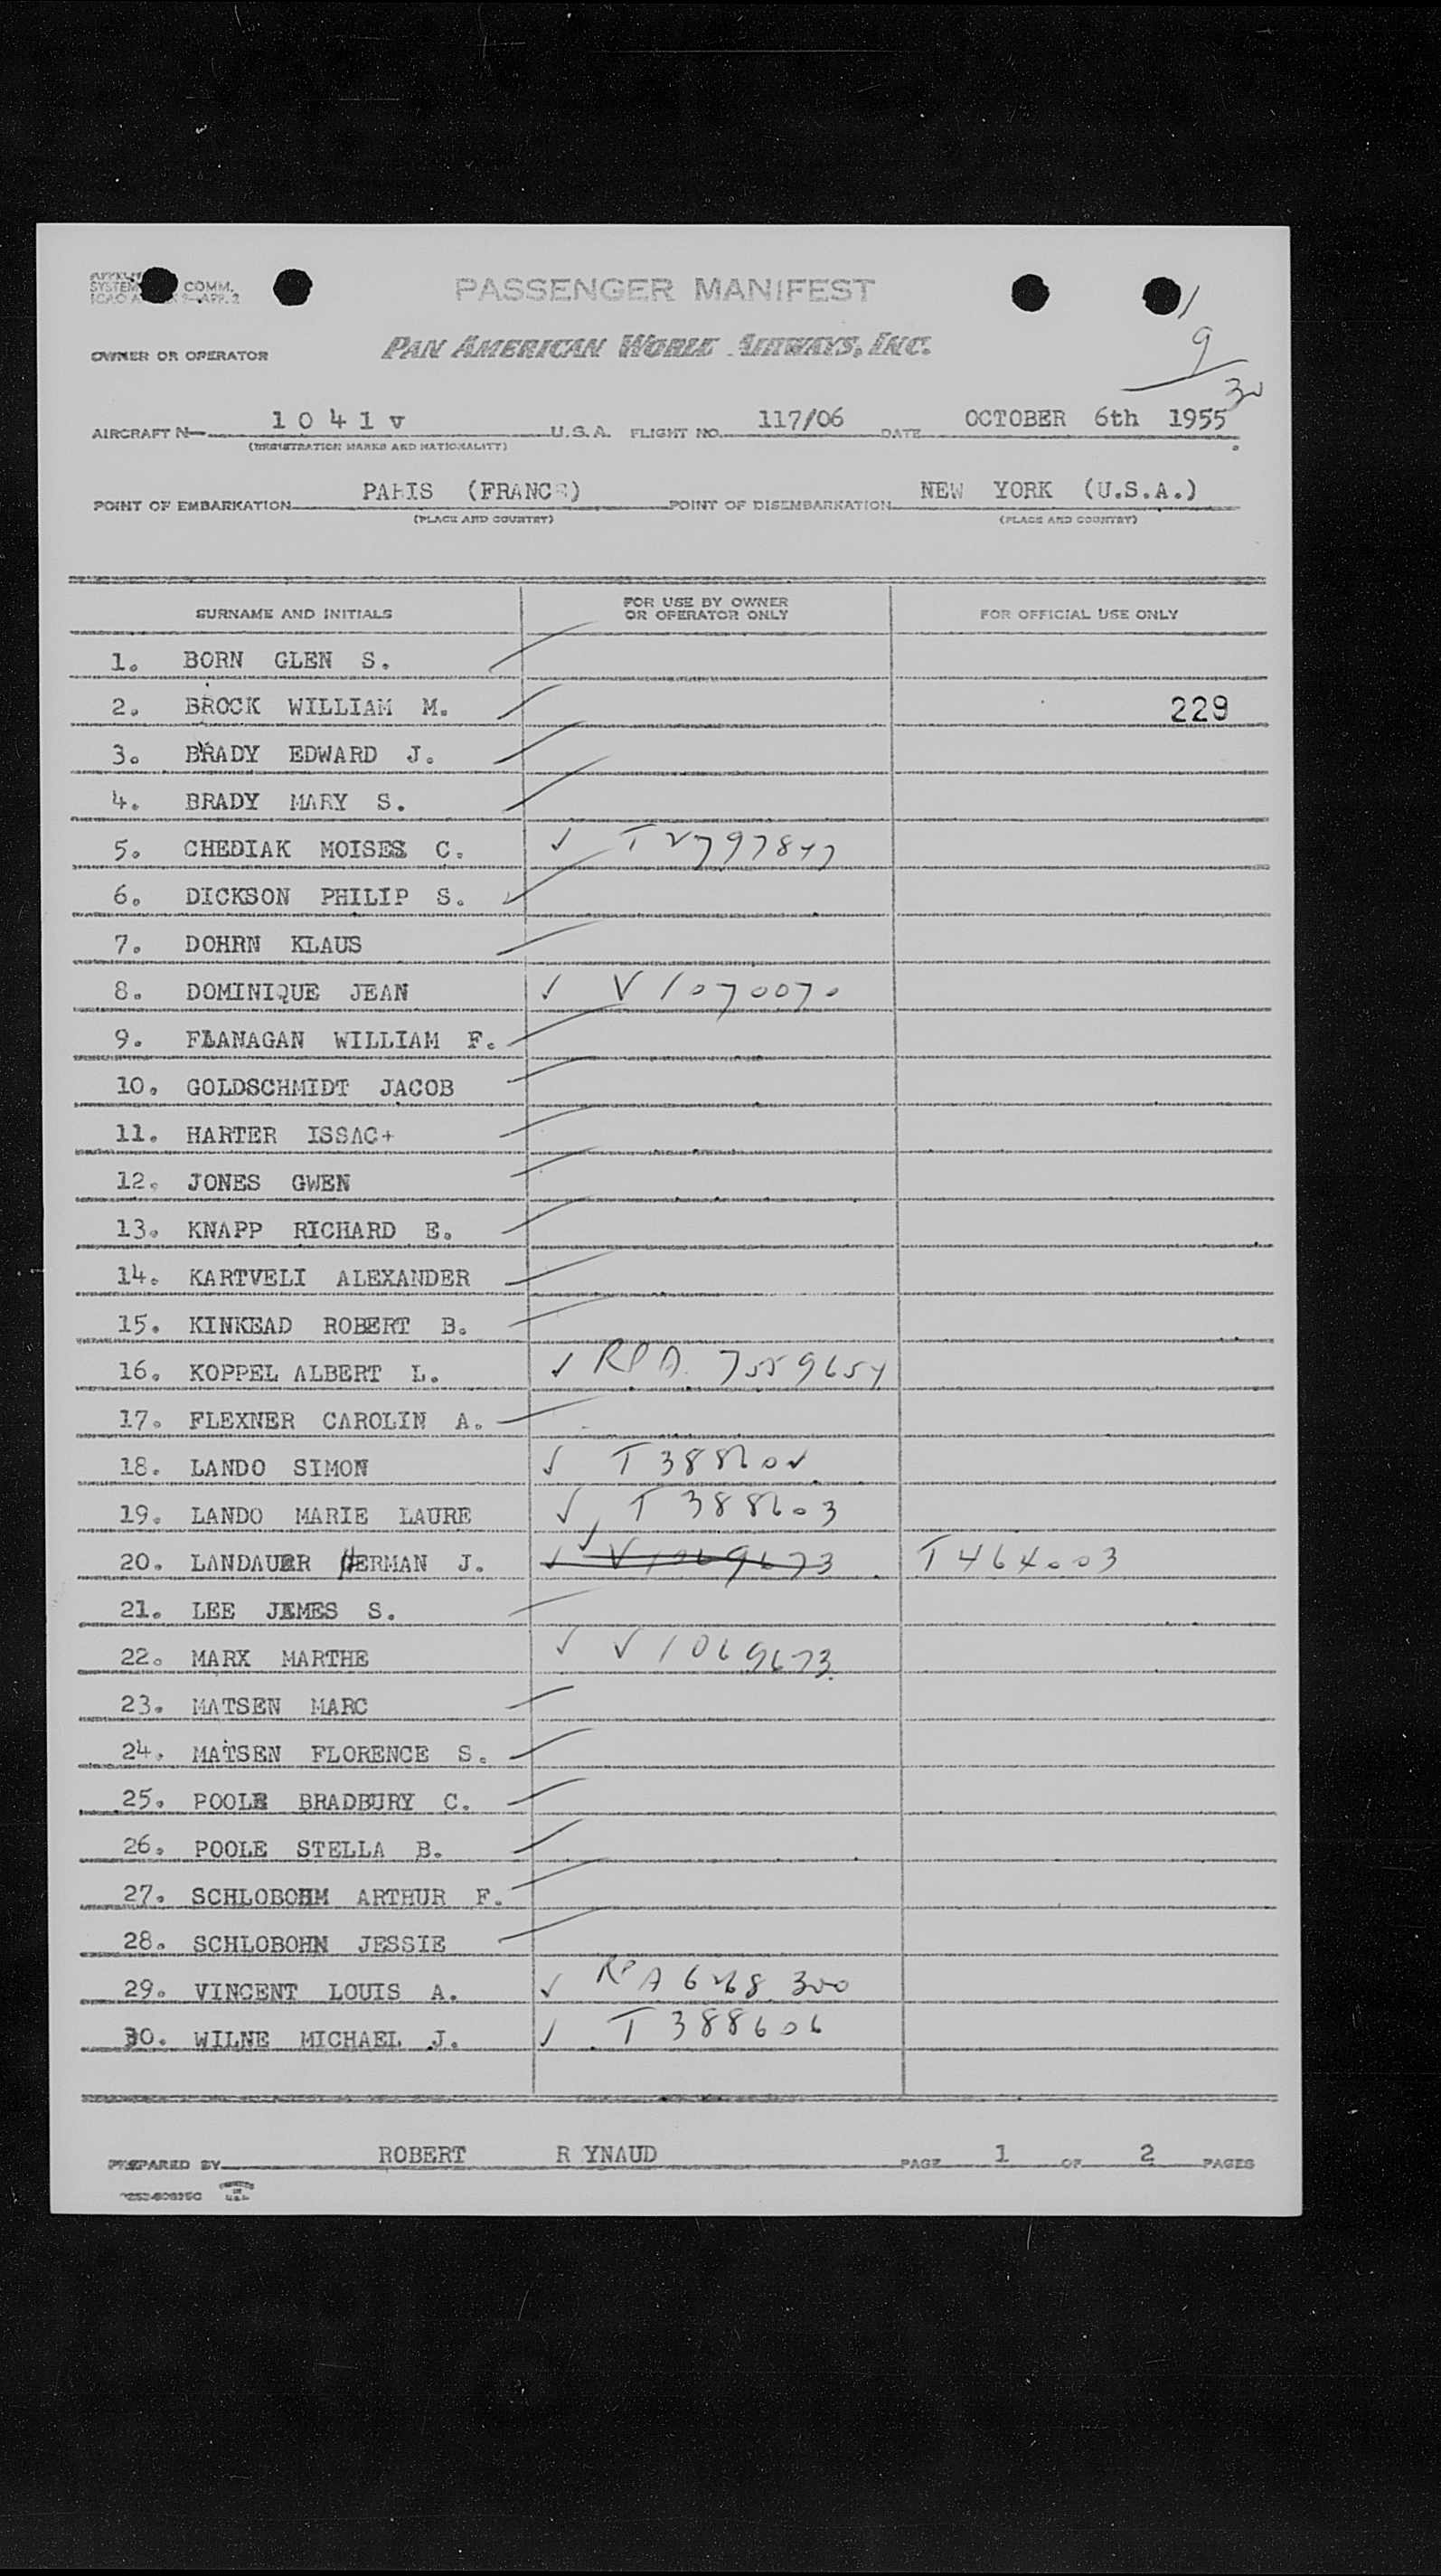 SYSTEM COMM.
PASSENGER MANIFEST
OWNER OR OPERATOR PAN AMERICAN WORLD AIRWAYS, INC.
9
30
AIRCRAFT N- 1 0 4 1 v U.S.A. FLIGHT NO. 117/06 DATE OCTOBER 6th 1955
(REGISTRATION MARKS AND NATIONALITY)
POINT OF EMBARKATION PARIS (FRANCE) POINT OF DISEMBARKATION NEW YORK (U.S.A.)
(PLACE AND COUNTRY) (PLACE AND COUNTRY)
SURNAME AND INITIALS FOR USE BY OWNER OR OPERATOR ONLY FOR OFFICIAL USE ONLY
1. BORN GLEN S.
2. BROCK WILLIAM M. 229
3. BRADY EDWARD J.
4. BRADY MARY S.
5. CHEDIAK MOISES C. ✓ T2797847
6. DICKSON PHILIP S.
7. DOHRN KLAUS
8. DOMINIQUE JEAN ✓ V1070070
9. FLANAGAN WILLIAM F.
10. GOLDSCHMIDT JACOB
11. HARTER ISSAC+
12. JONES GWEN
13. KNAPP RICHARD E.
14. KARTVELI ALEXANDER
15. KINKEAD ROBERT B.
16. KOPPEL ALBERT L. ✓ RPA 7559654
17. FLEXNER CAROLIN A.
18. LANDO SIMON ✓ T388602
19. LANDO MARIE LAURE ✓ T388603
20. LANDAUER HERMAN J. ✓ V1069673 T464003
21. LEE JAMES S.
22. MARX MARTHE ✓ V1069673
23. MATSEN MARC
24. MATSEN FLORENCE S.
25. POOLE BRADBURY C.
26. POOLE STELLA B.
27. SCHLOBOHM ARTHUR F.
28. SCHLOBOHN JESSIE
29. VINCENT LOUIS A. ✓ RPA 6268300
30. WILNE MICHAEL J. ✓ T388606
PREPARED BY ROBERT R YNAUD PAGE 1 OF 2 PAGES